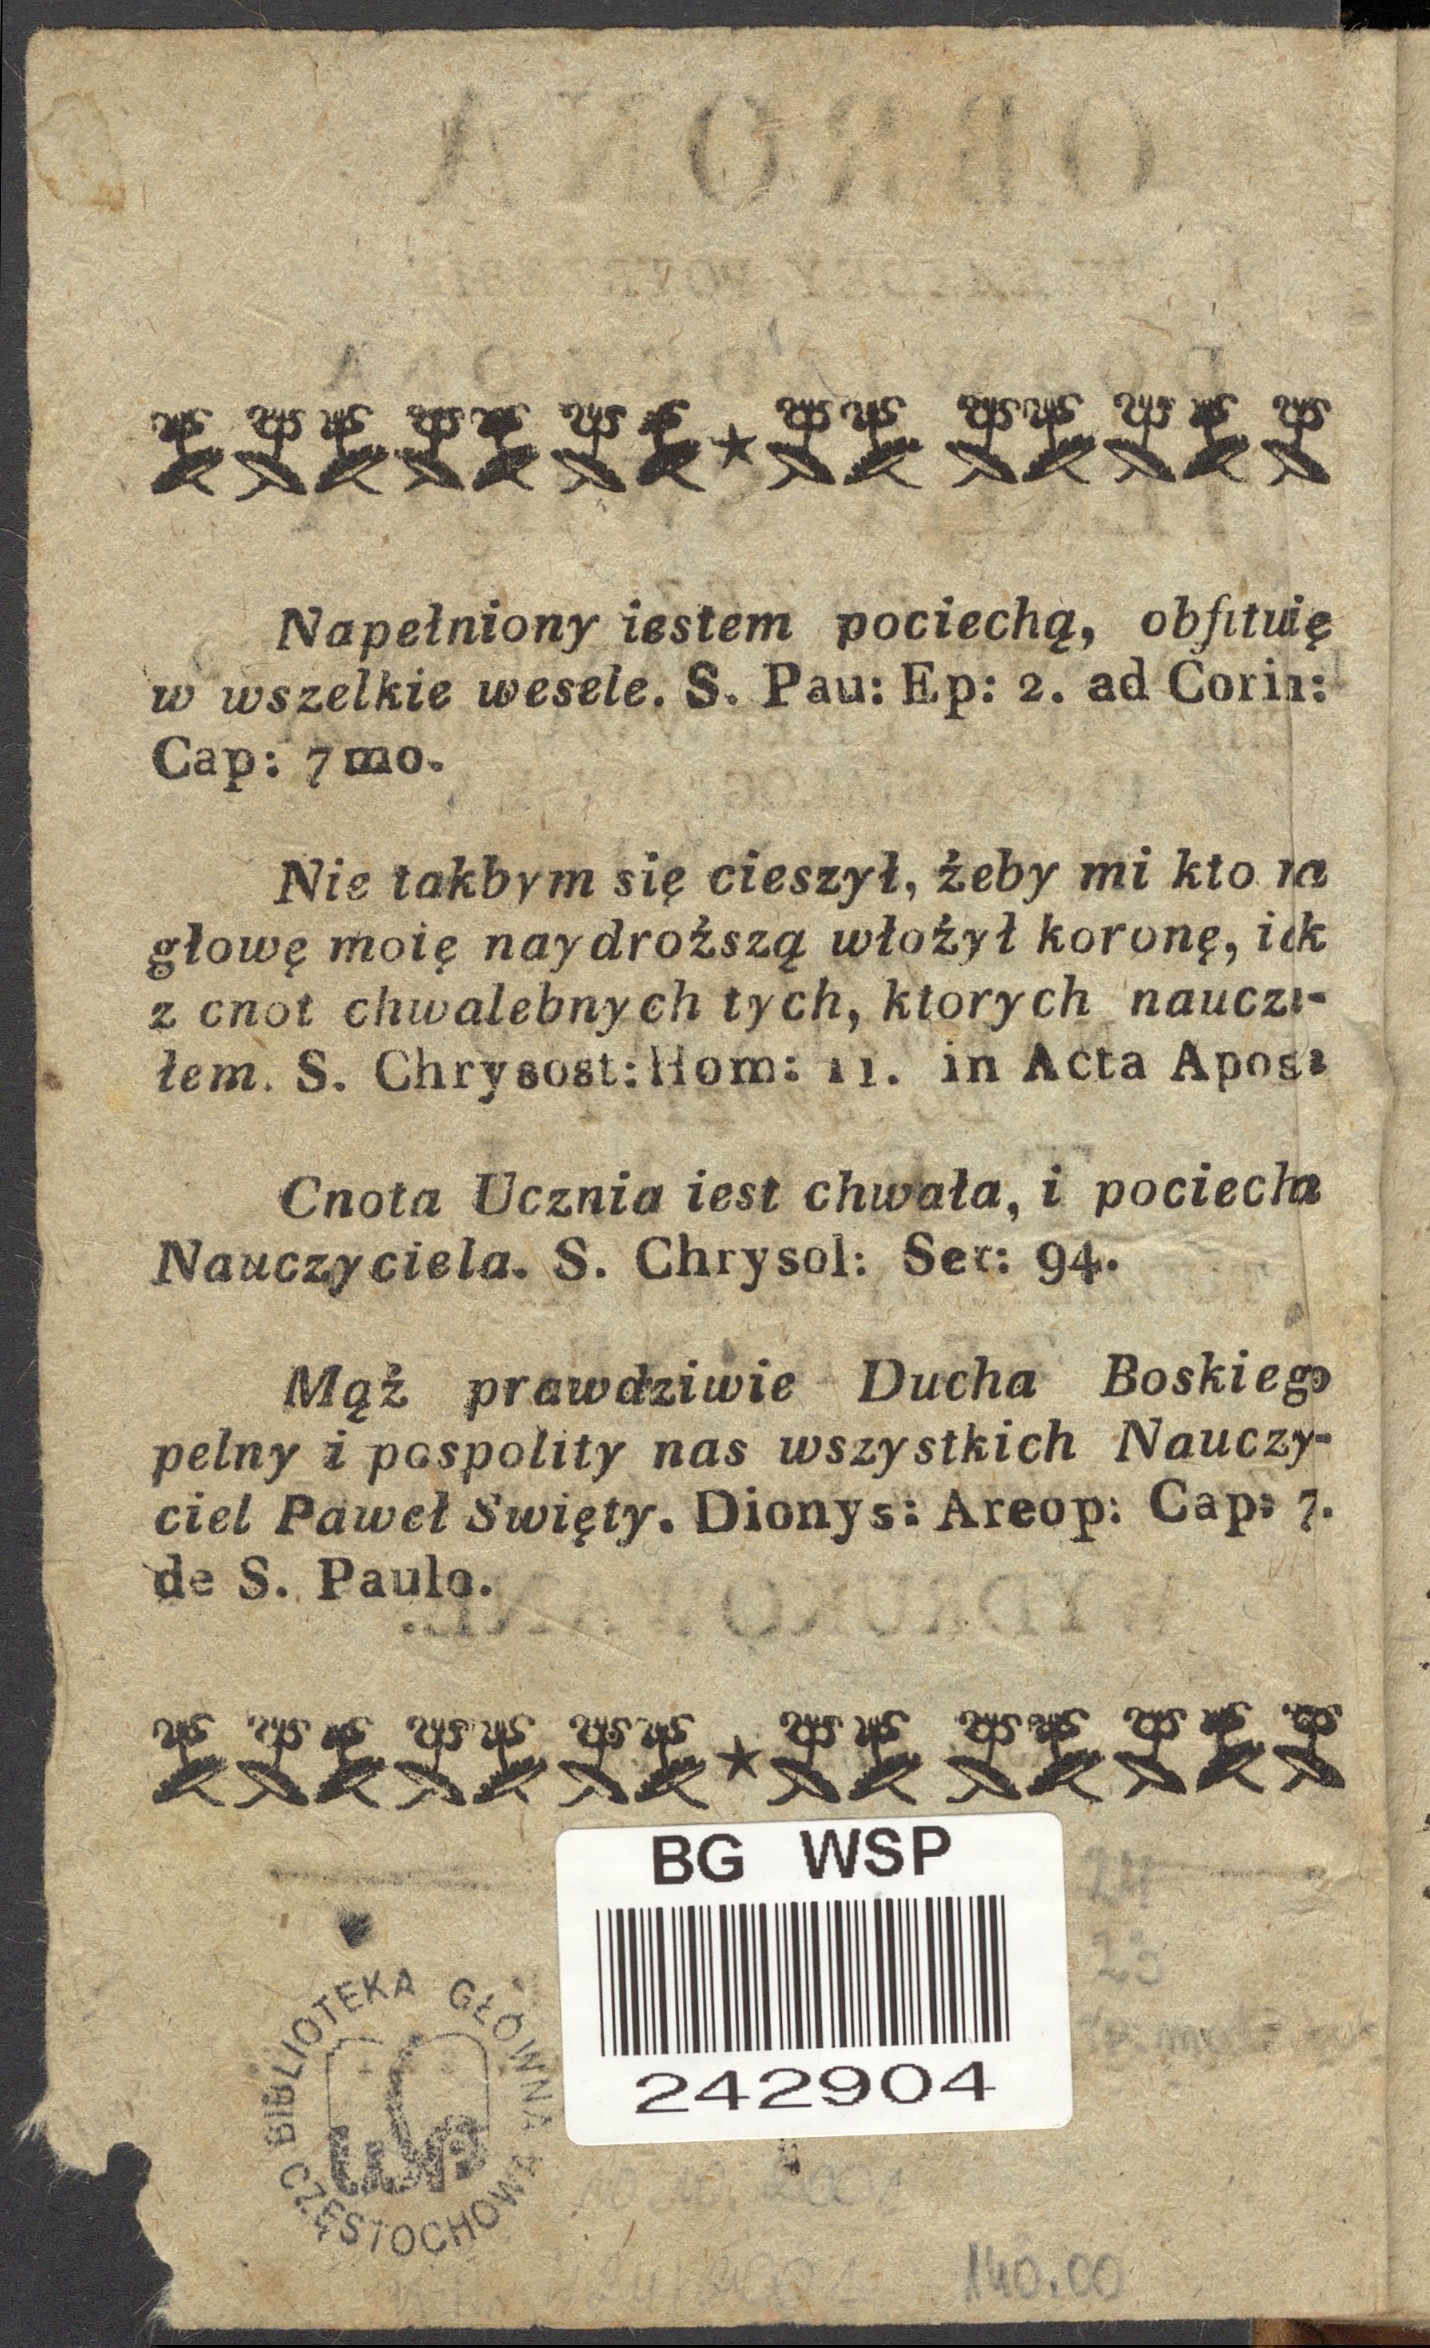 Napełniony iestem pociechą, obfituię
w wszelkie wesele. S. Pau: Ep: 2. ad Corin:
Cap: 7mo.
Nie takbym się cieszył, żeby mi kto na
głowę moię naydroższą włożył koronę, iak
z cnot chwalebnych tych, ktorych nauczy-
łem. S. Chrysost: Hom: 11. in Acta Apos:
Cnota Ucznia iest chwała, i pociecha
Nauczyciela. S. Chrysol: Ser: 94.
Mąż prawdziwie Ducha Boskiego
pelny i pospolity nas wszystkich Nauczy-
ciel Paweł Swięty. Dionys: Areop: Cap: 7.
de S. Paulo.
BG WSP
242904
BIBLIOTEKA GŁÓWNA
WSP
CZĘSTOCHOWA
24
25
140.00